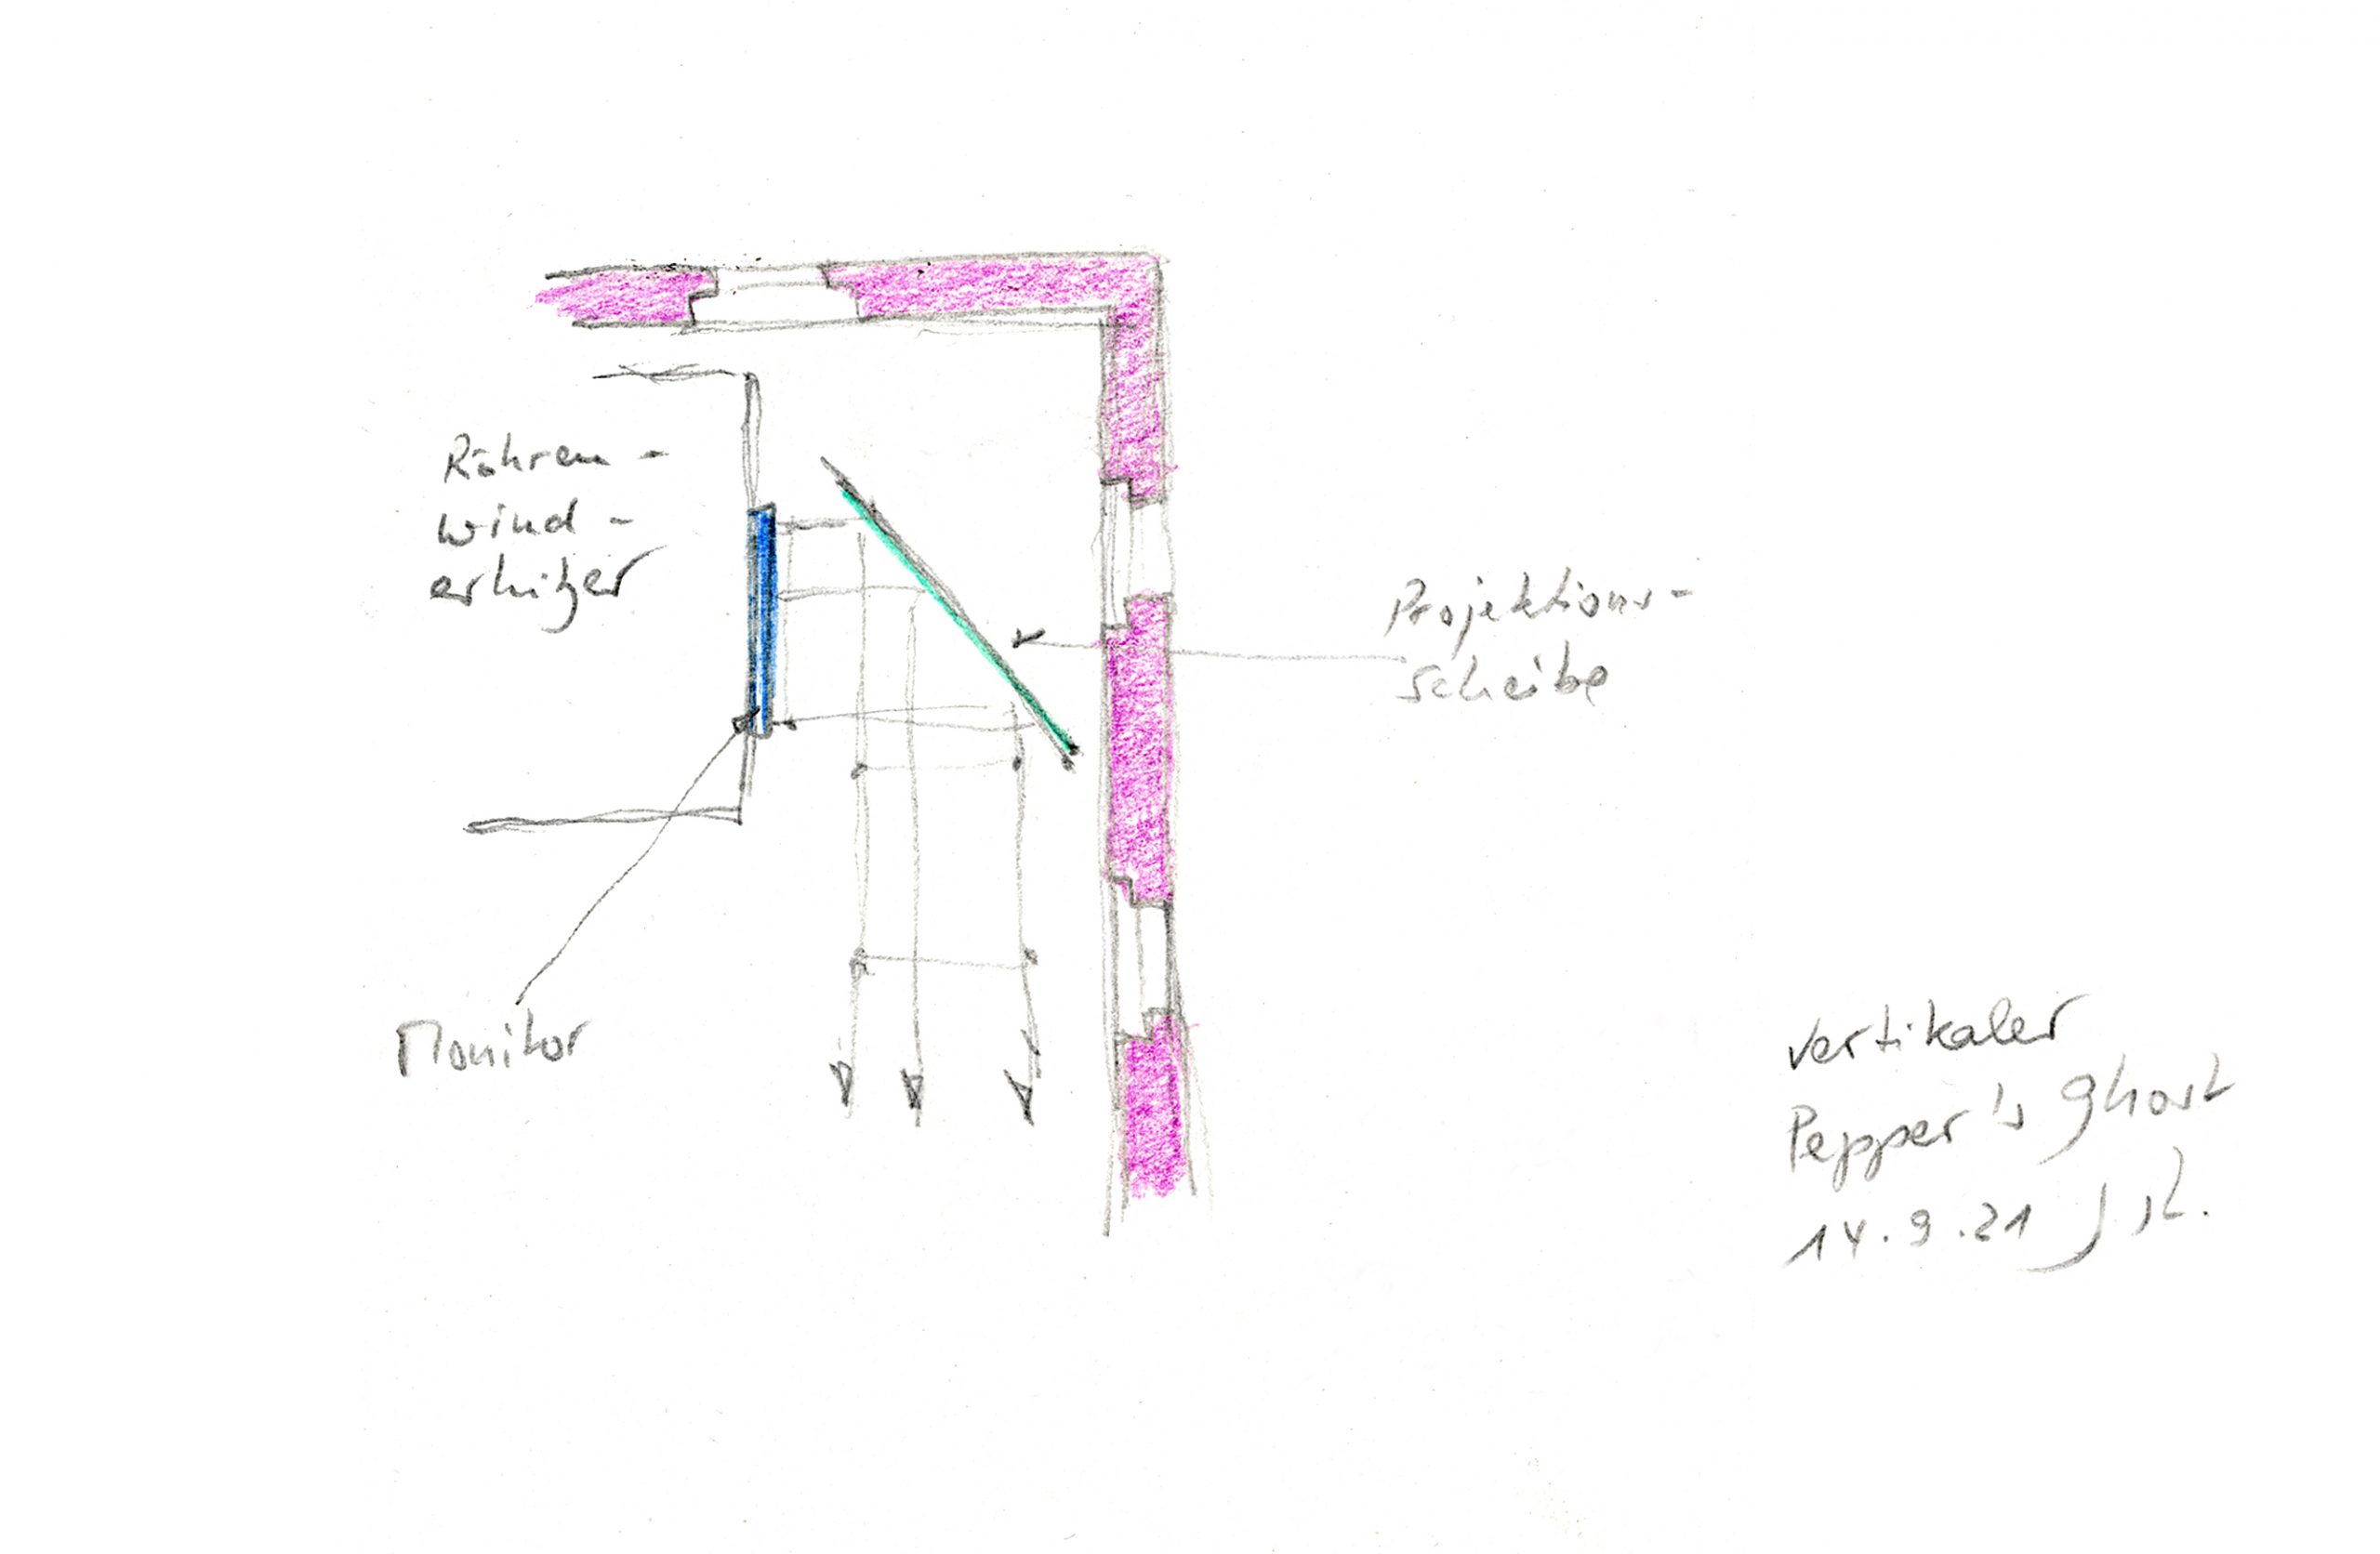 Röhren-
wind-
erhitzer
Projektions-
scheibe
Monitor
vertikaler
Pepper's ghost
14.9.21